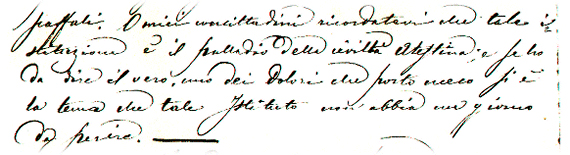 scaffali. O miei concittadini ricordatevi che tale i=
stituzione è il palladio della civiltà Atestina; e se ho
da dire il vero, uno dei dolori che porto meco si è
la tema che tale Istituto non abbia un giorno
da perire.